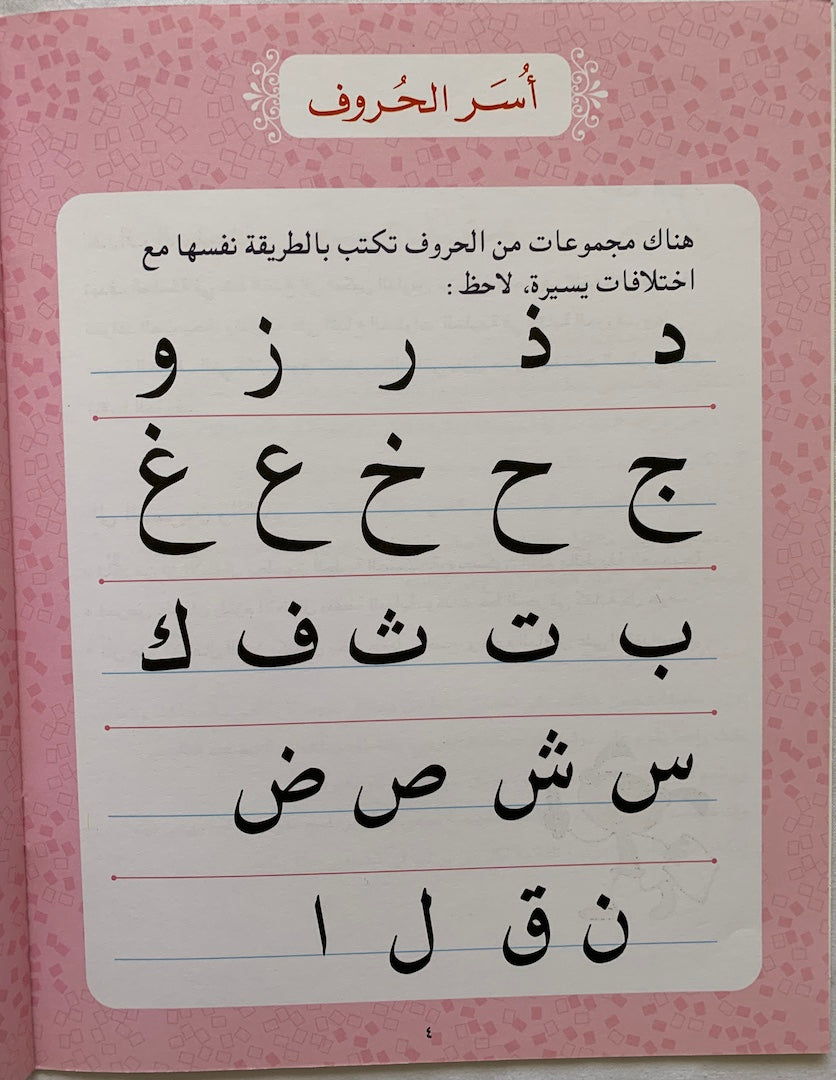 أُسَر الحُروف
هناك مجموعات من الحروف تكتب بالطريقة نفسها مع
اختلافات يسيرة، لاحظ :
د ذ ر ز و
ج ح خ ع غ
ب ت ث ف ك
س ش ص ض
ن ق ل ا
٤